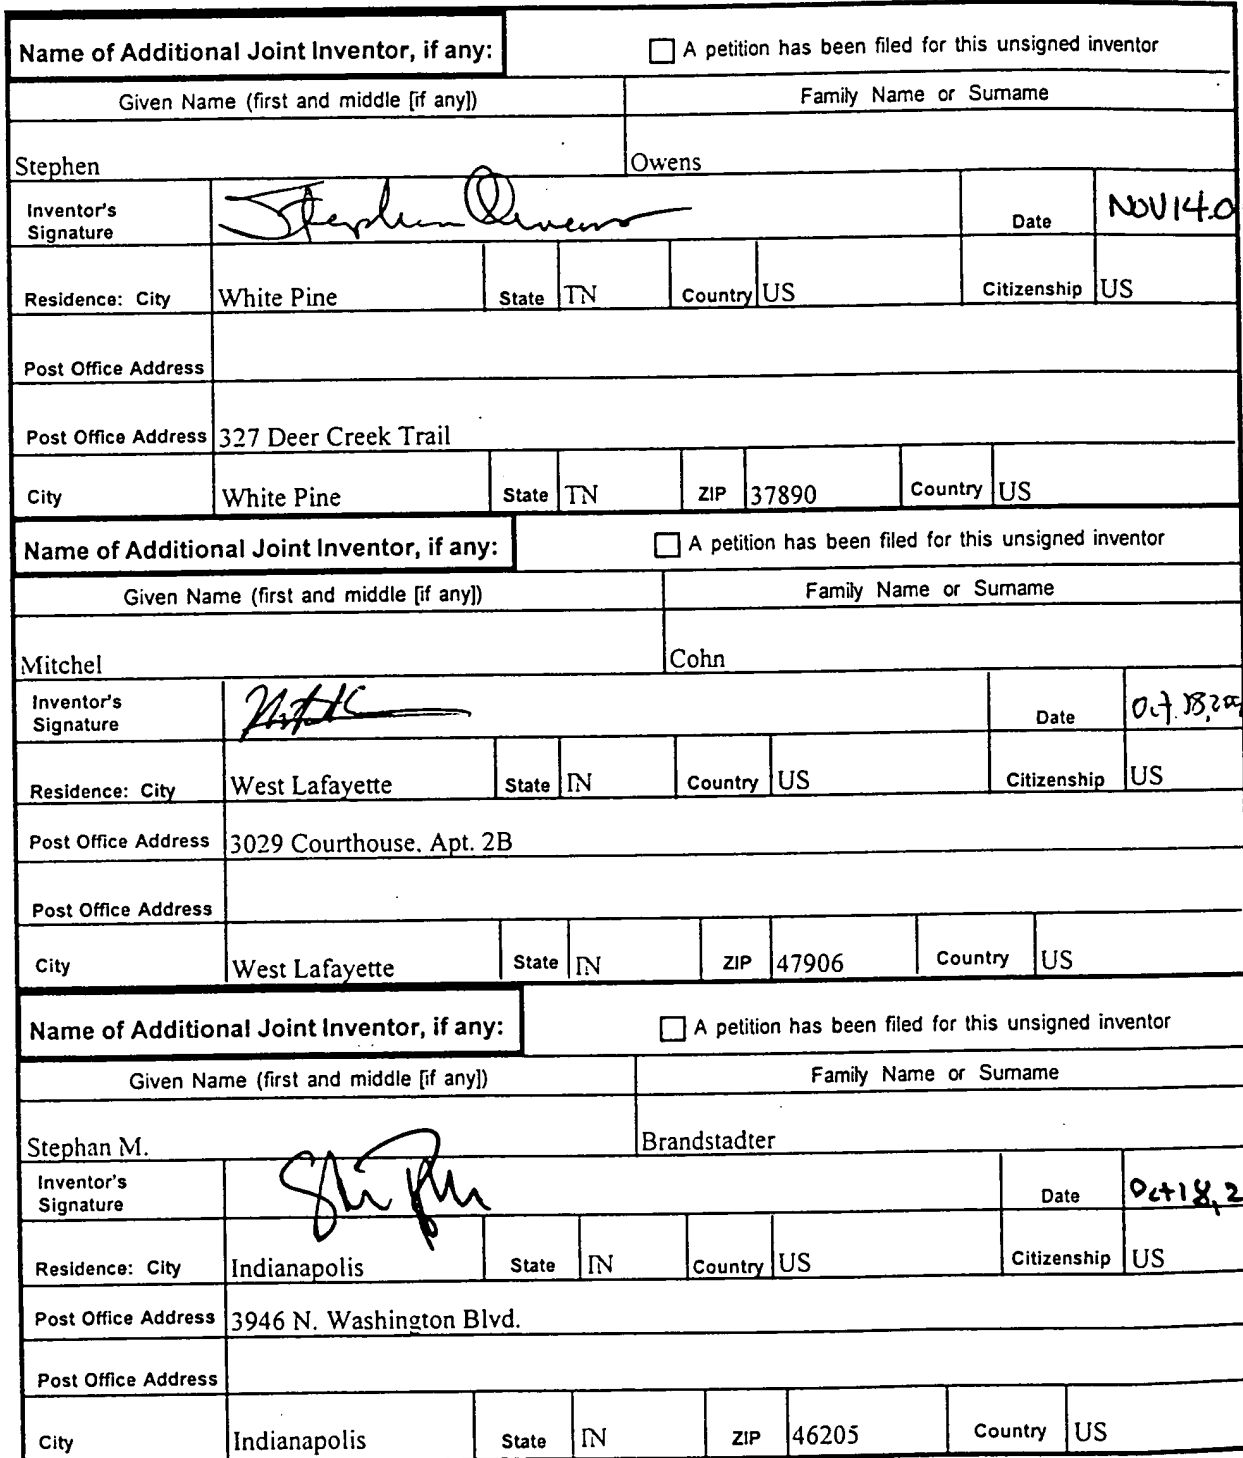 Name of Additional Joint Inventor, if any: A petition has been filed for this unsigned inventor
Given Name (first and middle [if any]) Family Name or Surname
Stephen Owens
Inventor's Signature Stephen Owens Date NOV 14.0
Residence: City White Pine State TN Country US Citizenship US
Post Office Address
Post Office Address 327 Deer Creek Trail
City White Pine State TN ZIP 37890 Country US
Name of Additional Joint Inventor, if any: A petition has been filed for this unsigned inventor
Given Name (first and middle [if any]) Family Name or Surname
Mitchel Cohn
Inventor's Signature Date Oct. 18, 200
Residence: City West Lafayette State IN Country US Citizenship US
Post Office Address 3029 Courthouse, Apt. 2B
Post Office Address
City West Lafayette State IN ZIP 47906 Country US
Name of Additional Joint Inventor, if any: A petition has been filed for this unsigned inventor
Given Name (first and middle [if any]) Family Name or Surname
Stephan M. Brandstadter
Inventor's Signature Date Oct 18, 2
Residence: City Indianapolis State IN Country US Citizenship US
Post Office Address 3946 N. Washington Blvd.
Post Office Address
City Indianapolis State IN ZIP 46205 Country US